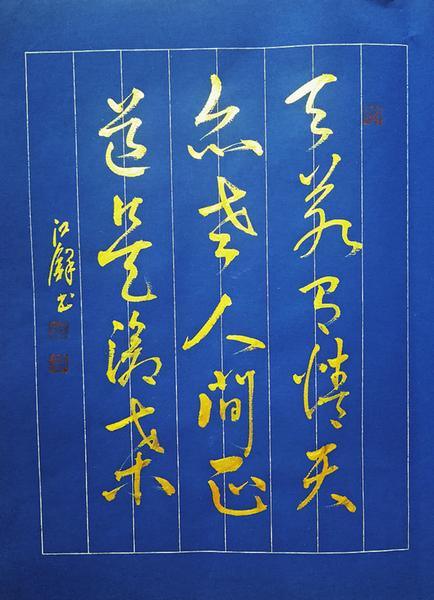 天若有情天
亦老人間正
道是滄桑
江鐸书